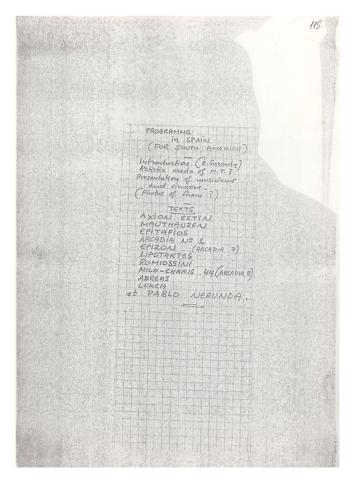 115.
PROGRAMME
in SPAIN
(FOR SOUTH AMERICA)
Introduction (R. Garaudy)
Artistic credo of M.T.?
Presentation of musicians
and singers.
(Photos of them?)
TEXTS
AXION ESTIN
MAUTHAUZEN
EPITAFIOS
ARCADIA No 1
EPIZON (ARCADIA 7)
LIPOTAKTES
ROMIOSSINI
MILO-CHARIS 49 (ARCADIA 8)
ADREAS
LORCA
et PABLO NERUNDA.